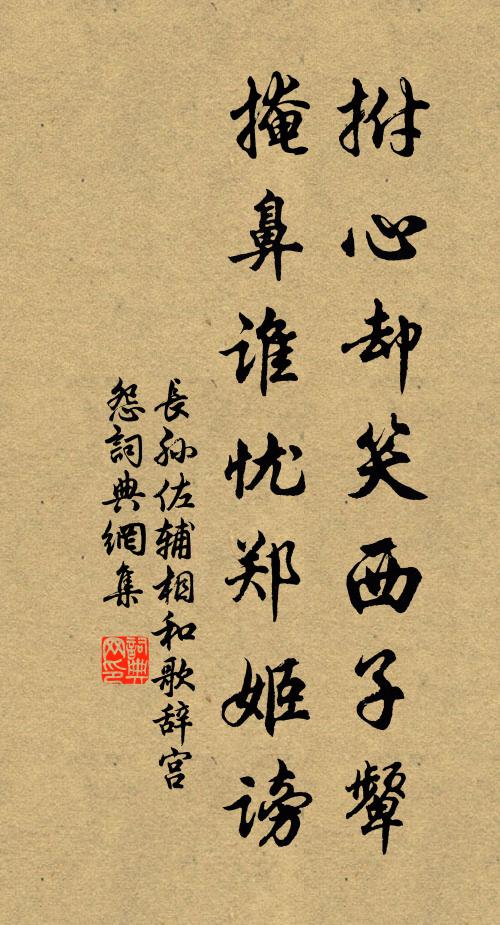 拊心却笑西子颦
掩鼻谁忧郑姬谤
長孙佐辅相和歌辞宫
怨詞典網集
詞典网印